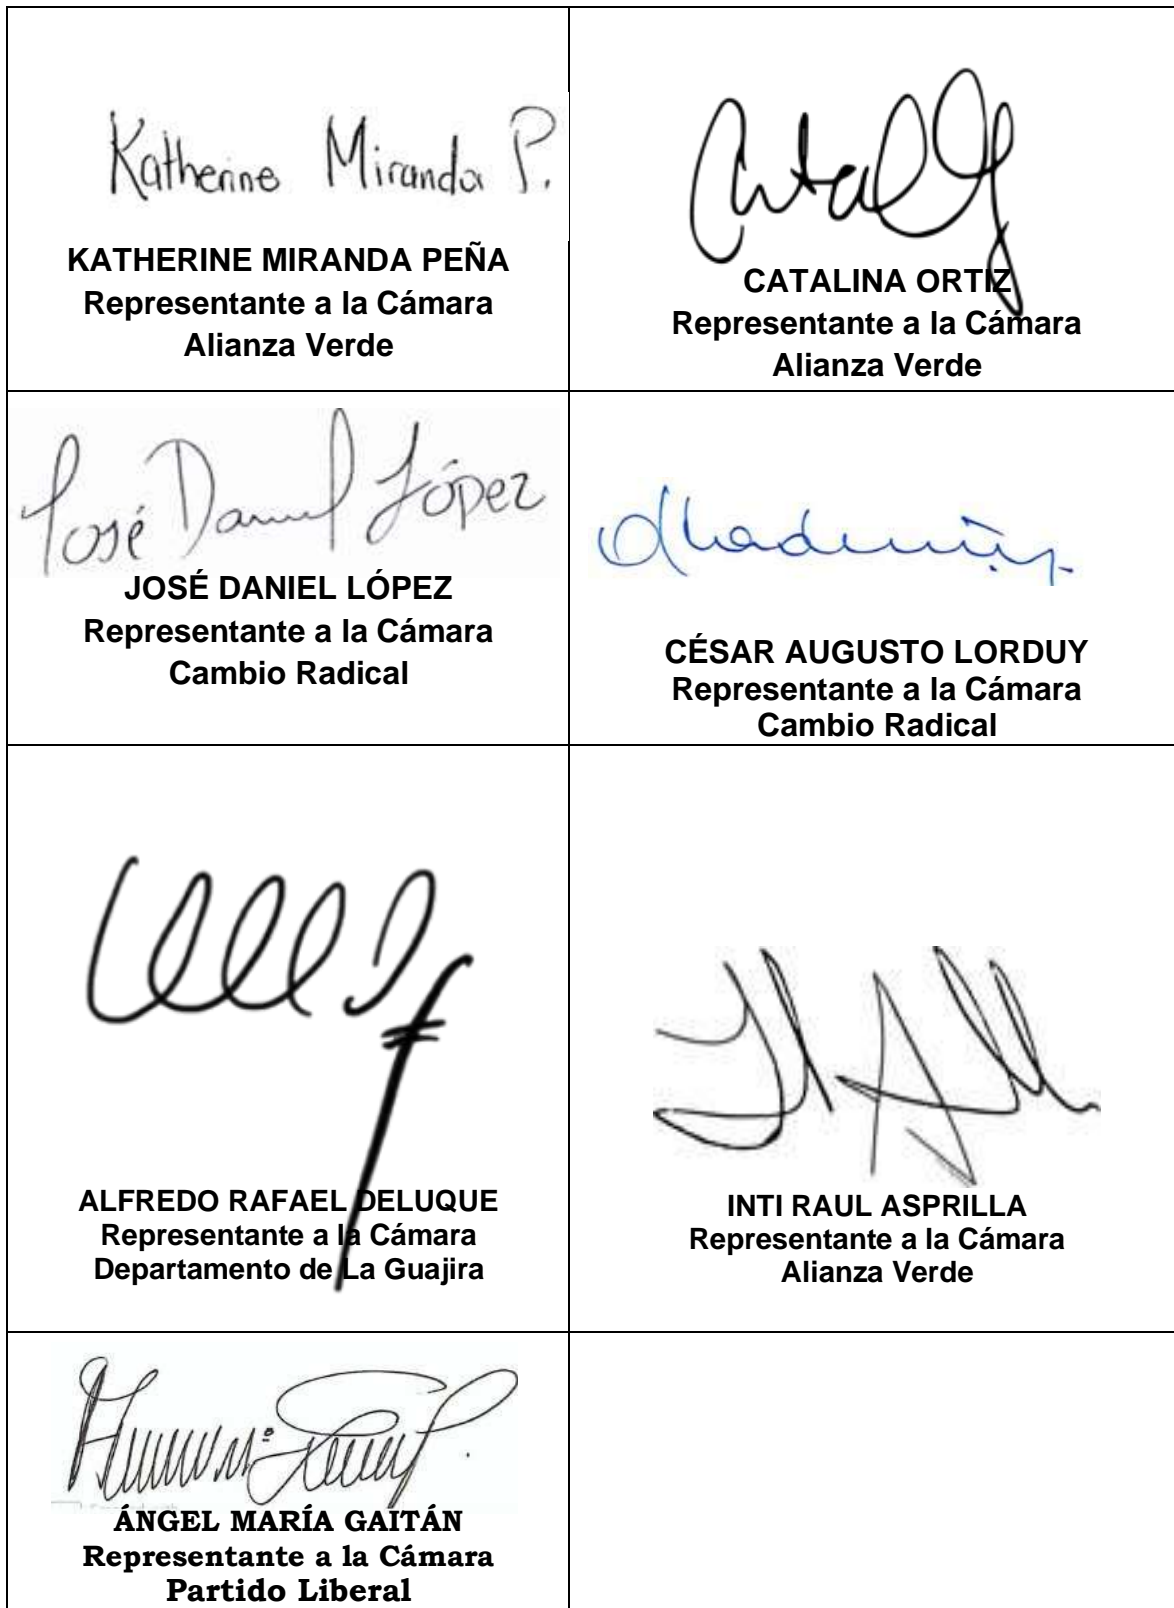 Katherine Miranda P.
KATHERINE MIRANDA PEÑA
Representante a la Cámara
Alianza Verde
CATALINA ORTIZ
Representante a la Cámara
Alianza Verde
José Daniel López
JOSÉ DANIEL LÓPEZ
Representante a la Cámara
Cambio Radical
CÉSAR AUGUSTO LORDUY
Representante a la Cámara
Cambio Radical
ALFREDO RAFAEL DELUQUE
Representante a la Cámara
Departamento de La Guajira
INTI RAUL ASPRILLA
Representante a la Cámara
Alianza Verde
ÁNGEL MARÍA GAITÁN
Representante a la Cámara
Partido Liberal